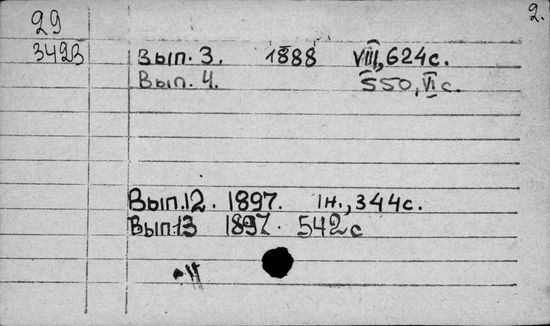 2.
29
3423
Вып. 3. 1888 VIII, 624 с.
Вып. 4. 550, VI с.
Вып. 12. 1897. 1н., 344 с.
Вып. 13 1897. 542 с